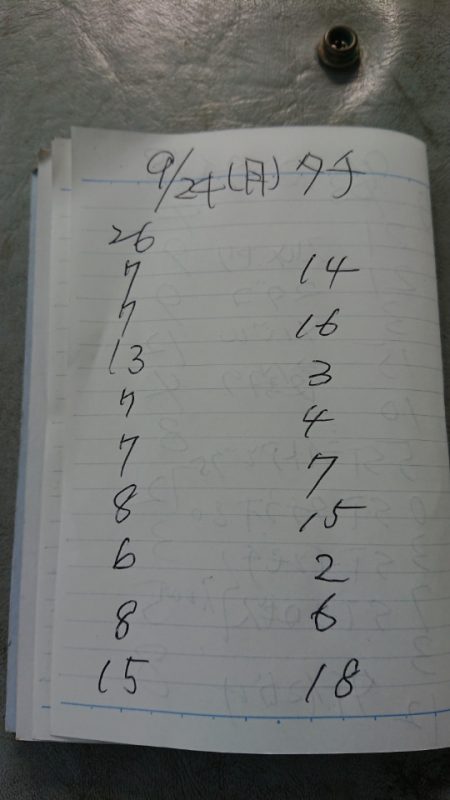 9/24(月) タチ
26
7 14
7 16
13 3
7 4
7 7
8 15
6 2
8 6
15 18